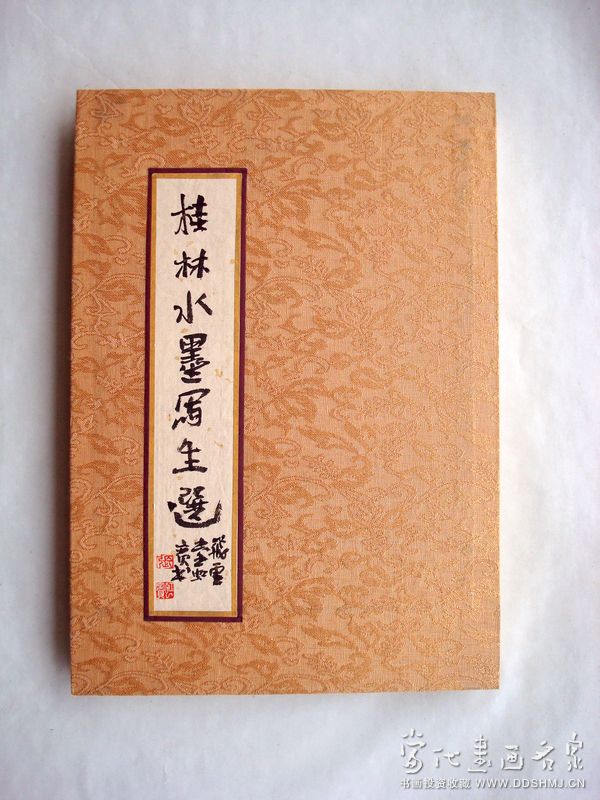 桂林水墨寫生選
飛雲
當代書画名家
书画投资收藏 WWW.DDSHMJ.CN